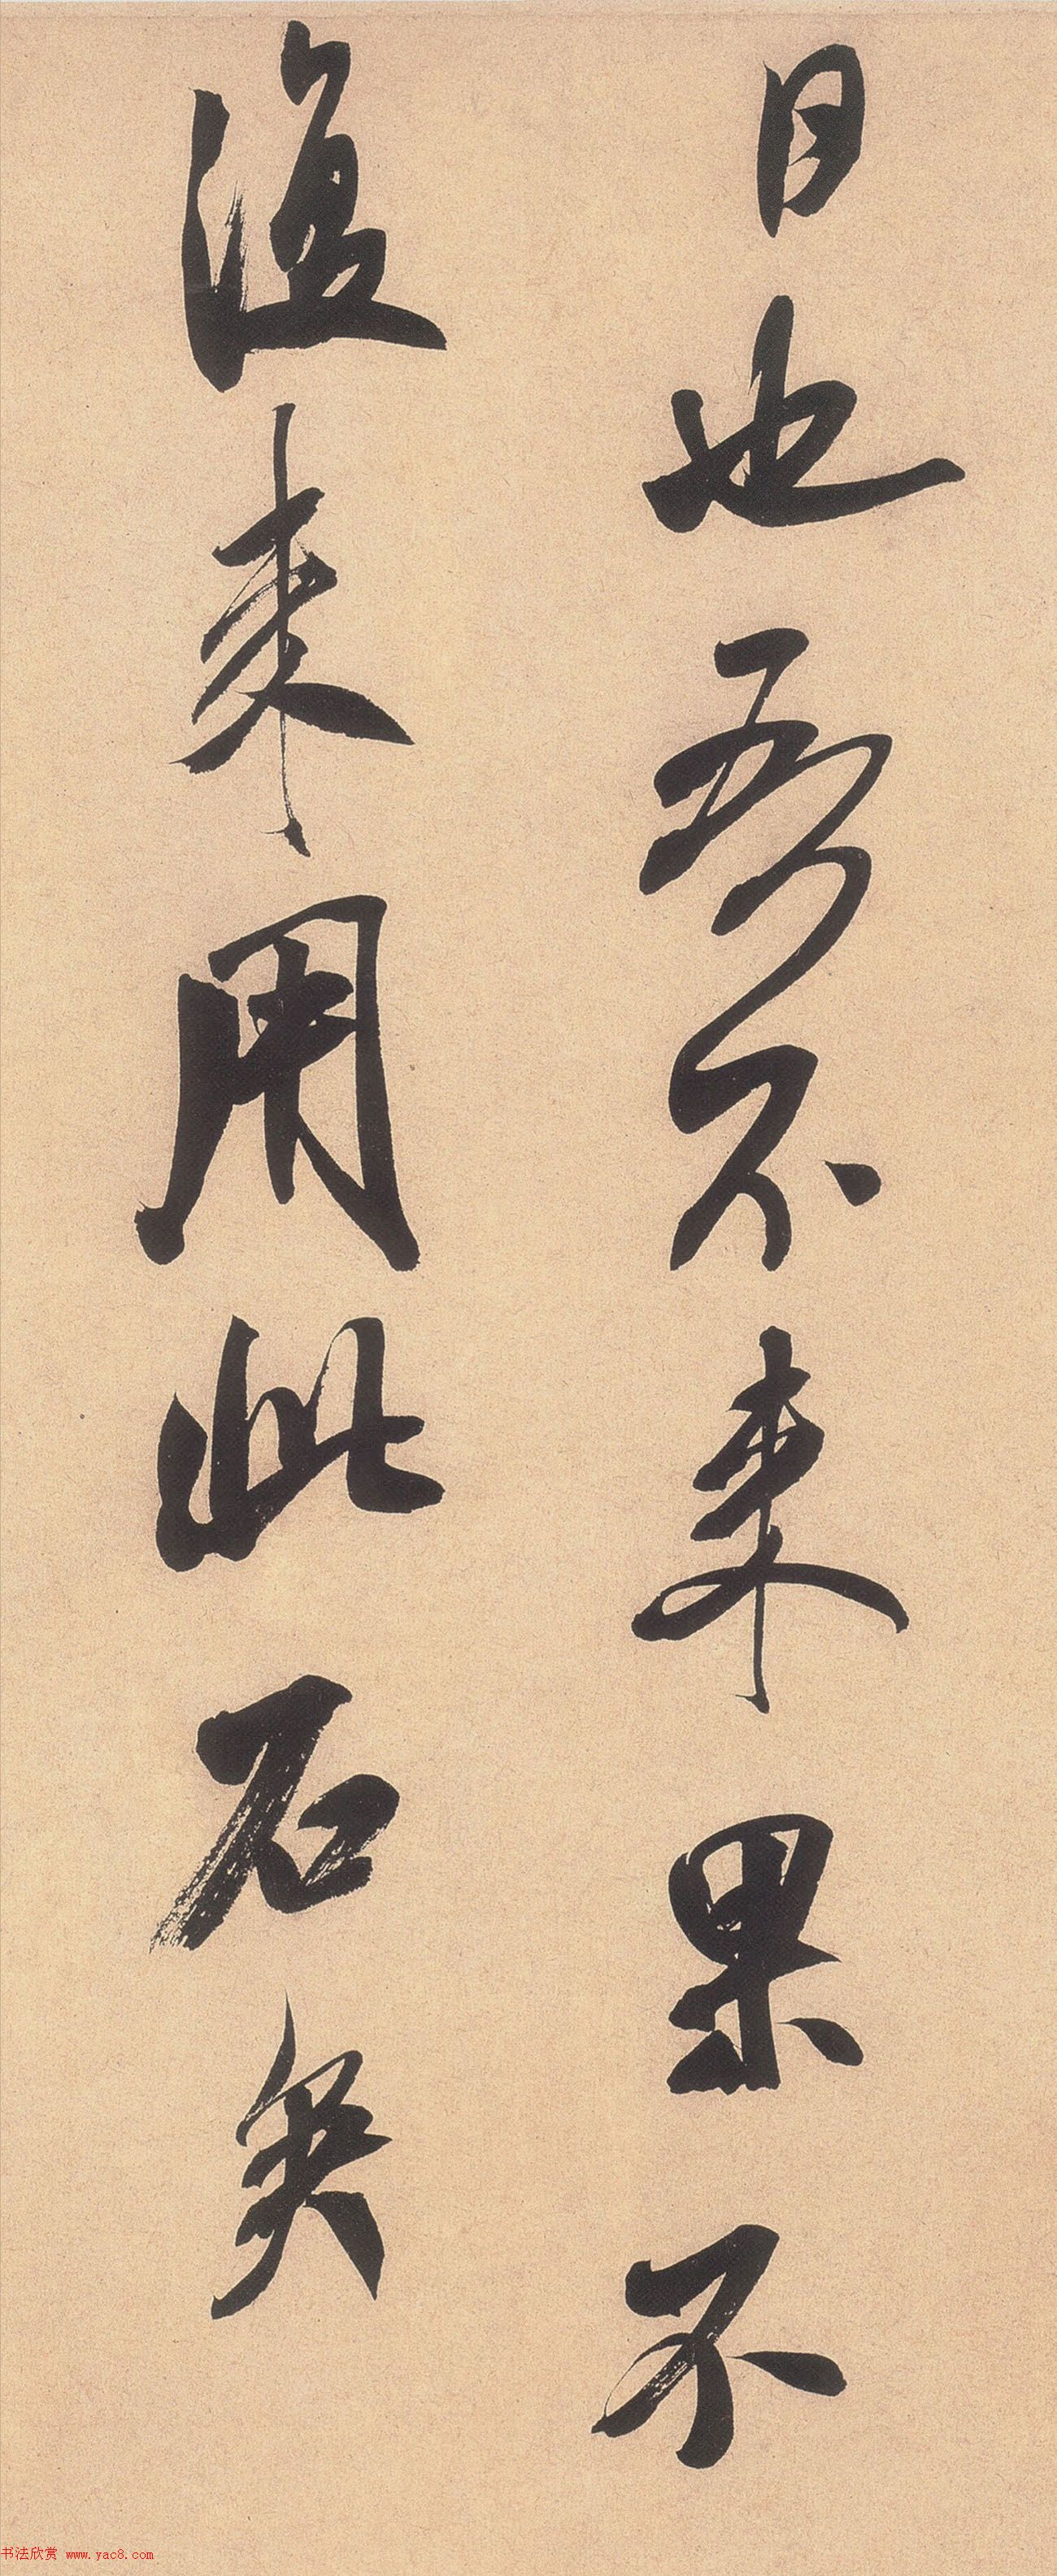 日也吾不来果不
復来用此石矣
书法欣赏 www.yac8.com